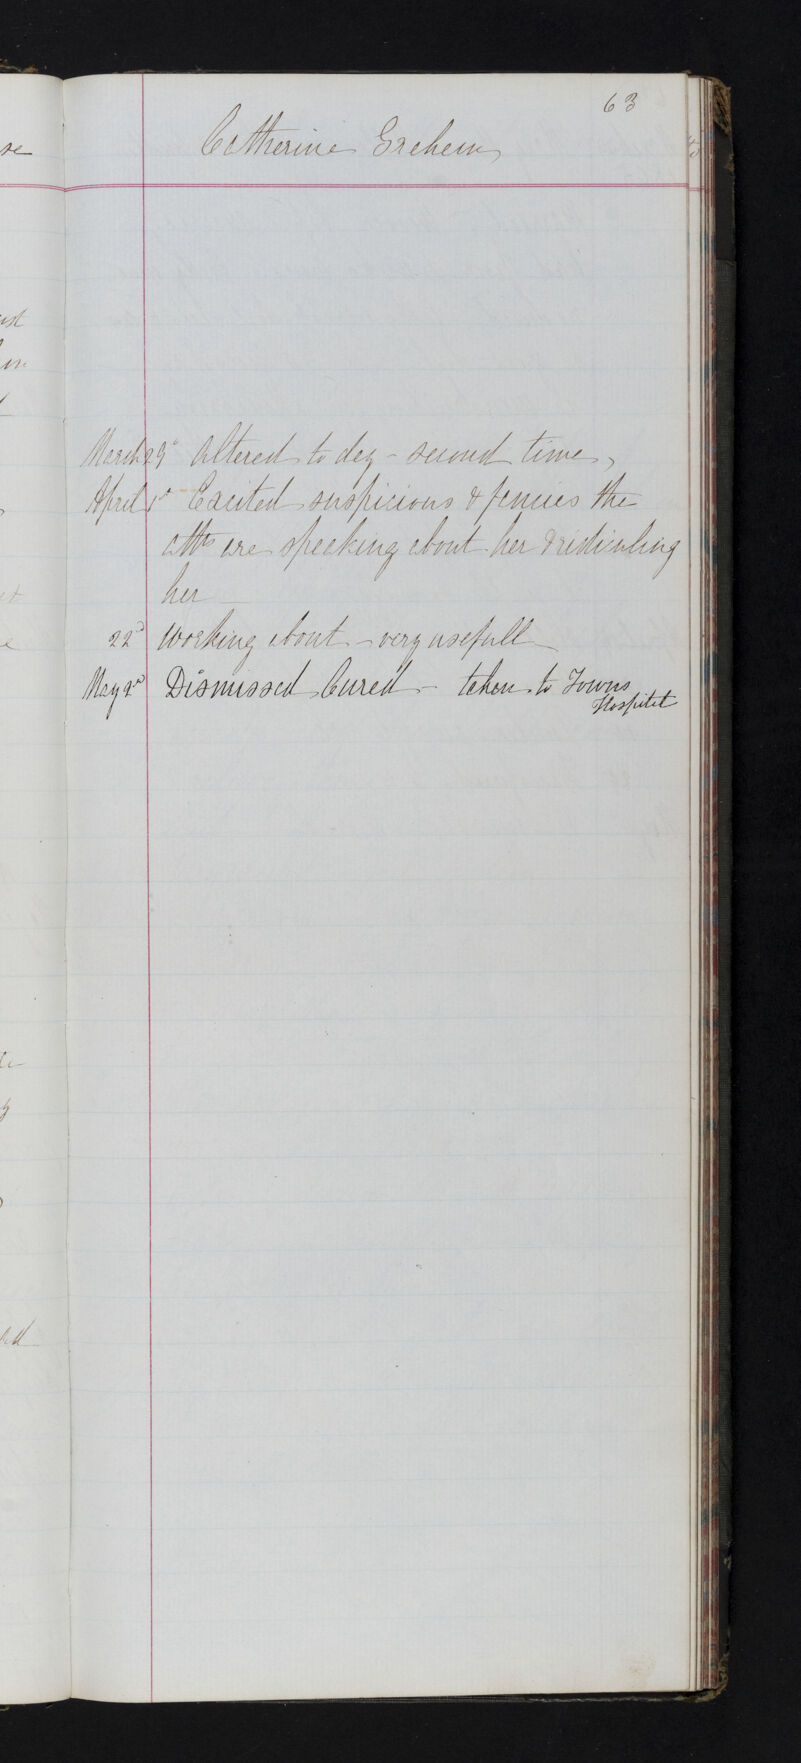 63
Catherine Graham
March 29th Altered to day - second time,
April 1st Excited suspicious & fancies the
atts are speaking about her & ridiculing
her
22d Working about - very usefull
May 2d Dismissed Cured - taken to Towns
Hospital